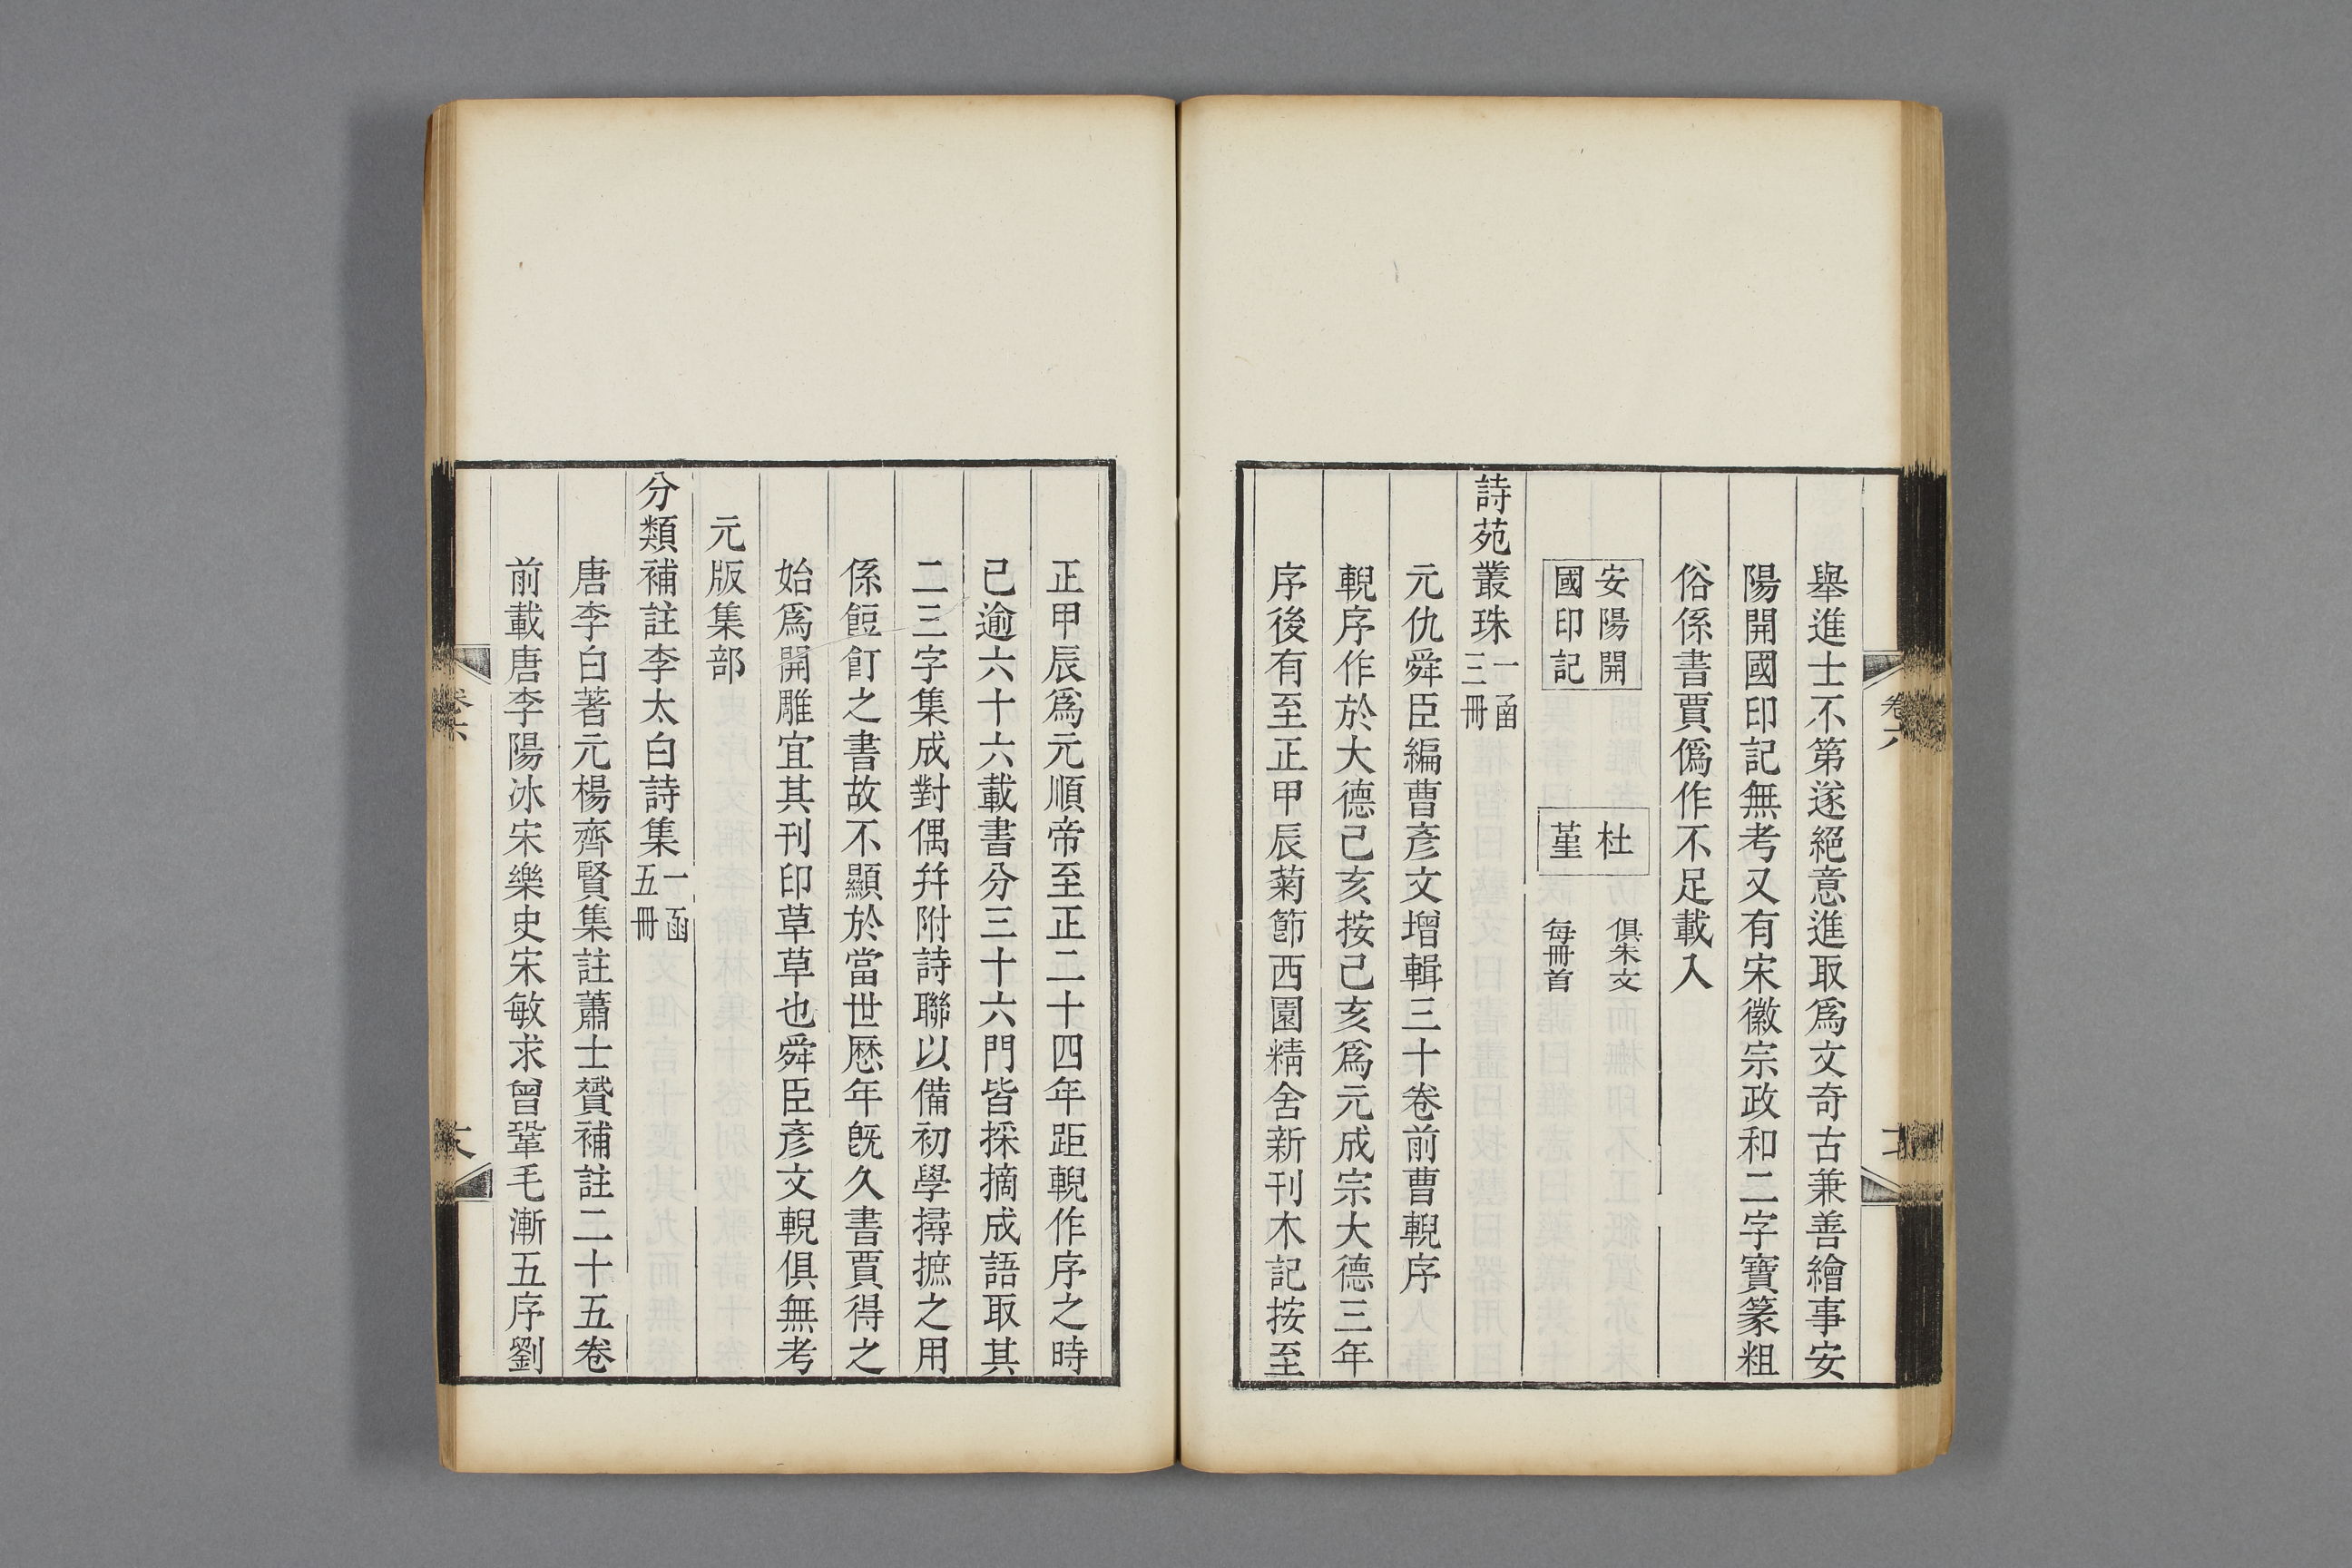 舉進士不第遂絕意進取爲文奇古兼善繪事安
陽開國印記無考又有宋徽宗政和二字寶篆粗
俗係書賈僞作不足載入
安陽開
國印記
杜
堇
俱朱文
每冊首
詩苑叢珠一函
三冊
元仇舜臣編曹彥文增輯三十卷前曹輗序
輗序作於大德己亥按己亥爲元成宗大德三年
序後有至正甲辰菊節西園精舍新刊木記按至
正甲辰爲元順帝至正二十四年距輗作序之時
已逾六十六載書分三十六門皆採摘成語取其
二三字集成對偶幷附詩聯以備初學撏摭之用
係餖飣之書故不顯於當世厯年旣久書賈得之
始爲開雕宜其刊印草草也舜臣彥文輗俱無考
元版集部
分類補註李太白詩集一函
五冊
唐李白著元楊齊賢集註蕭士贇補註二十五卷
前載唐李陽冰宋樂史宋敏求曾鞏毛漸五序劉
卷六